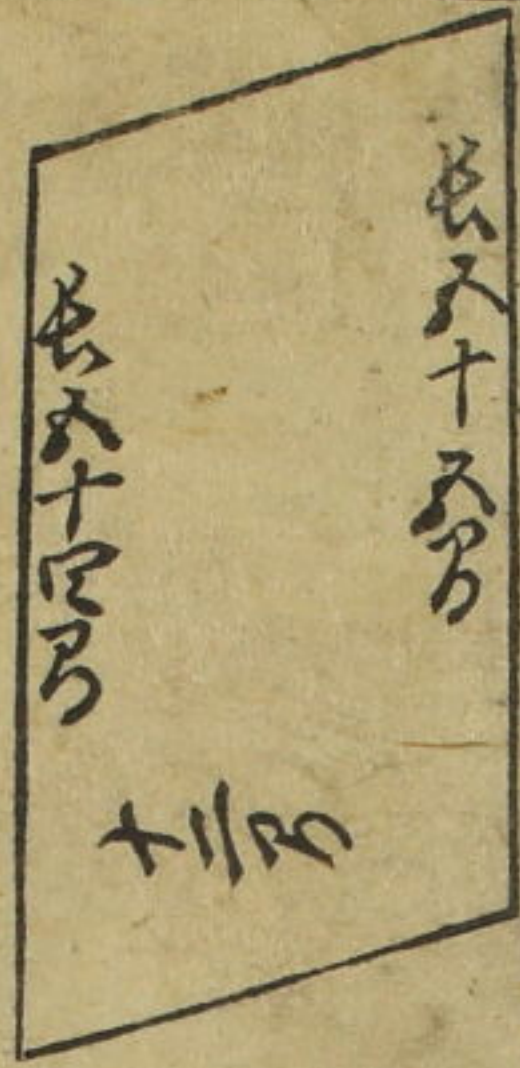 長五十五間
長五十四間
十二間